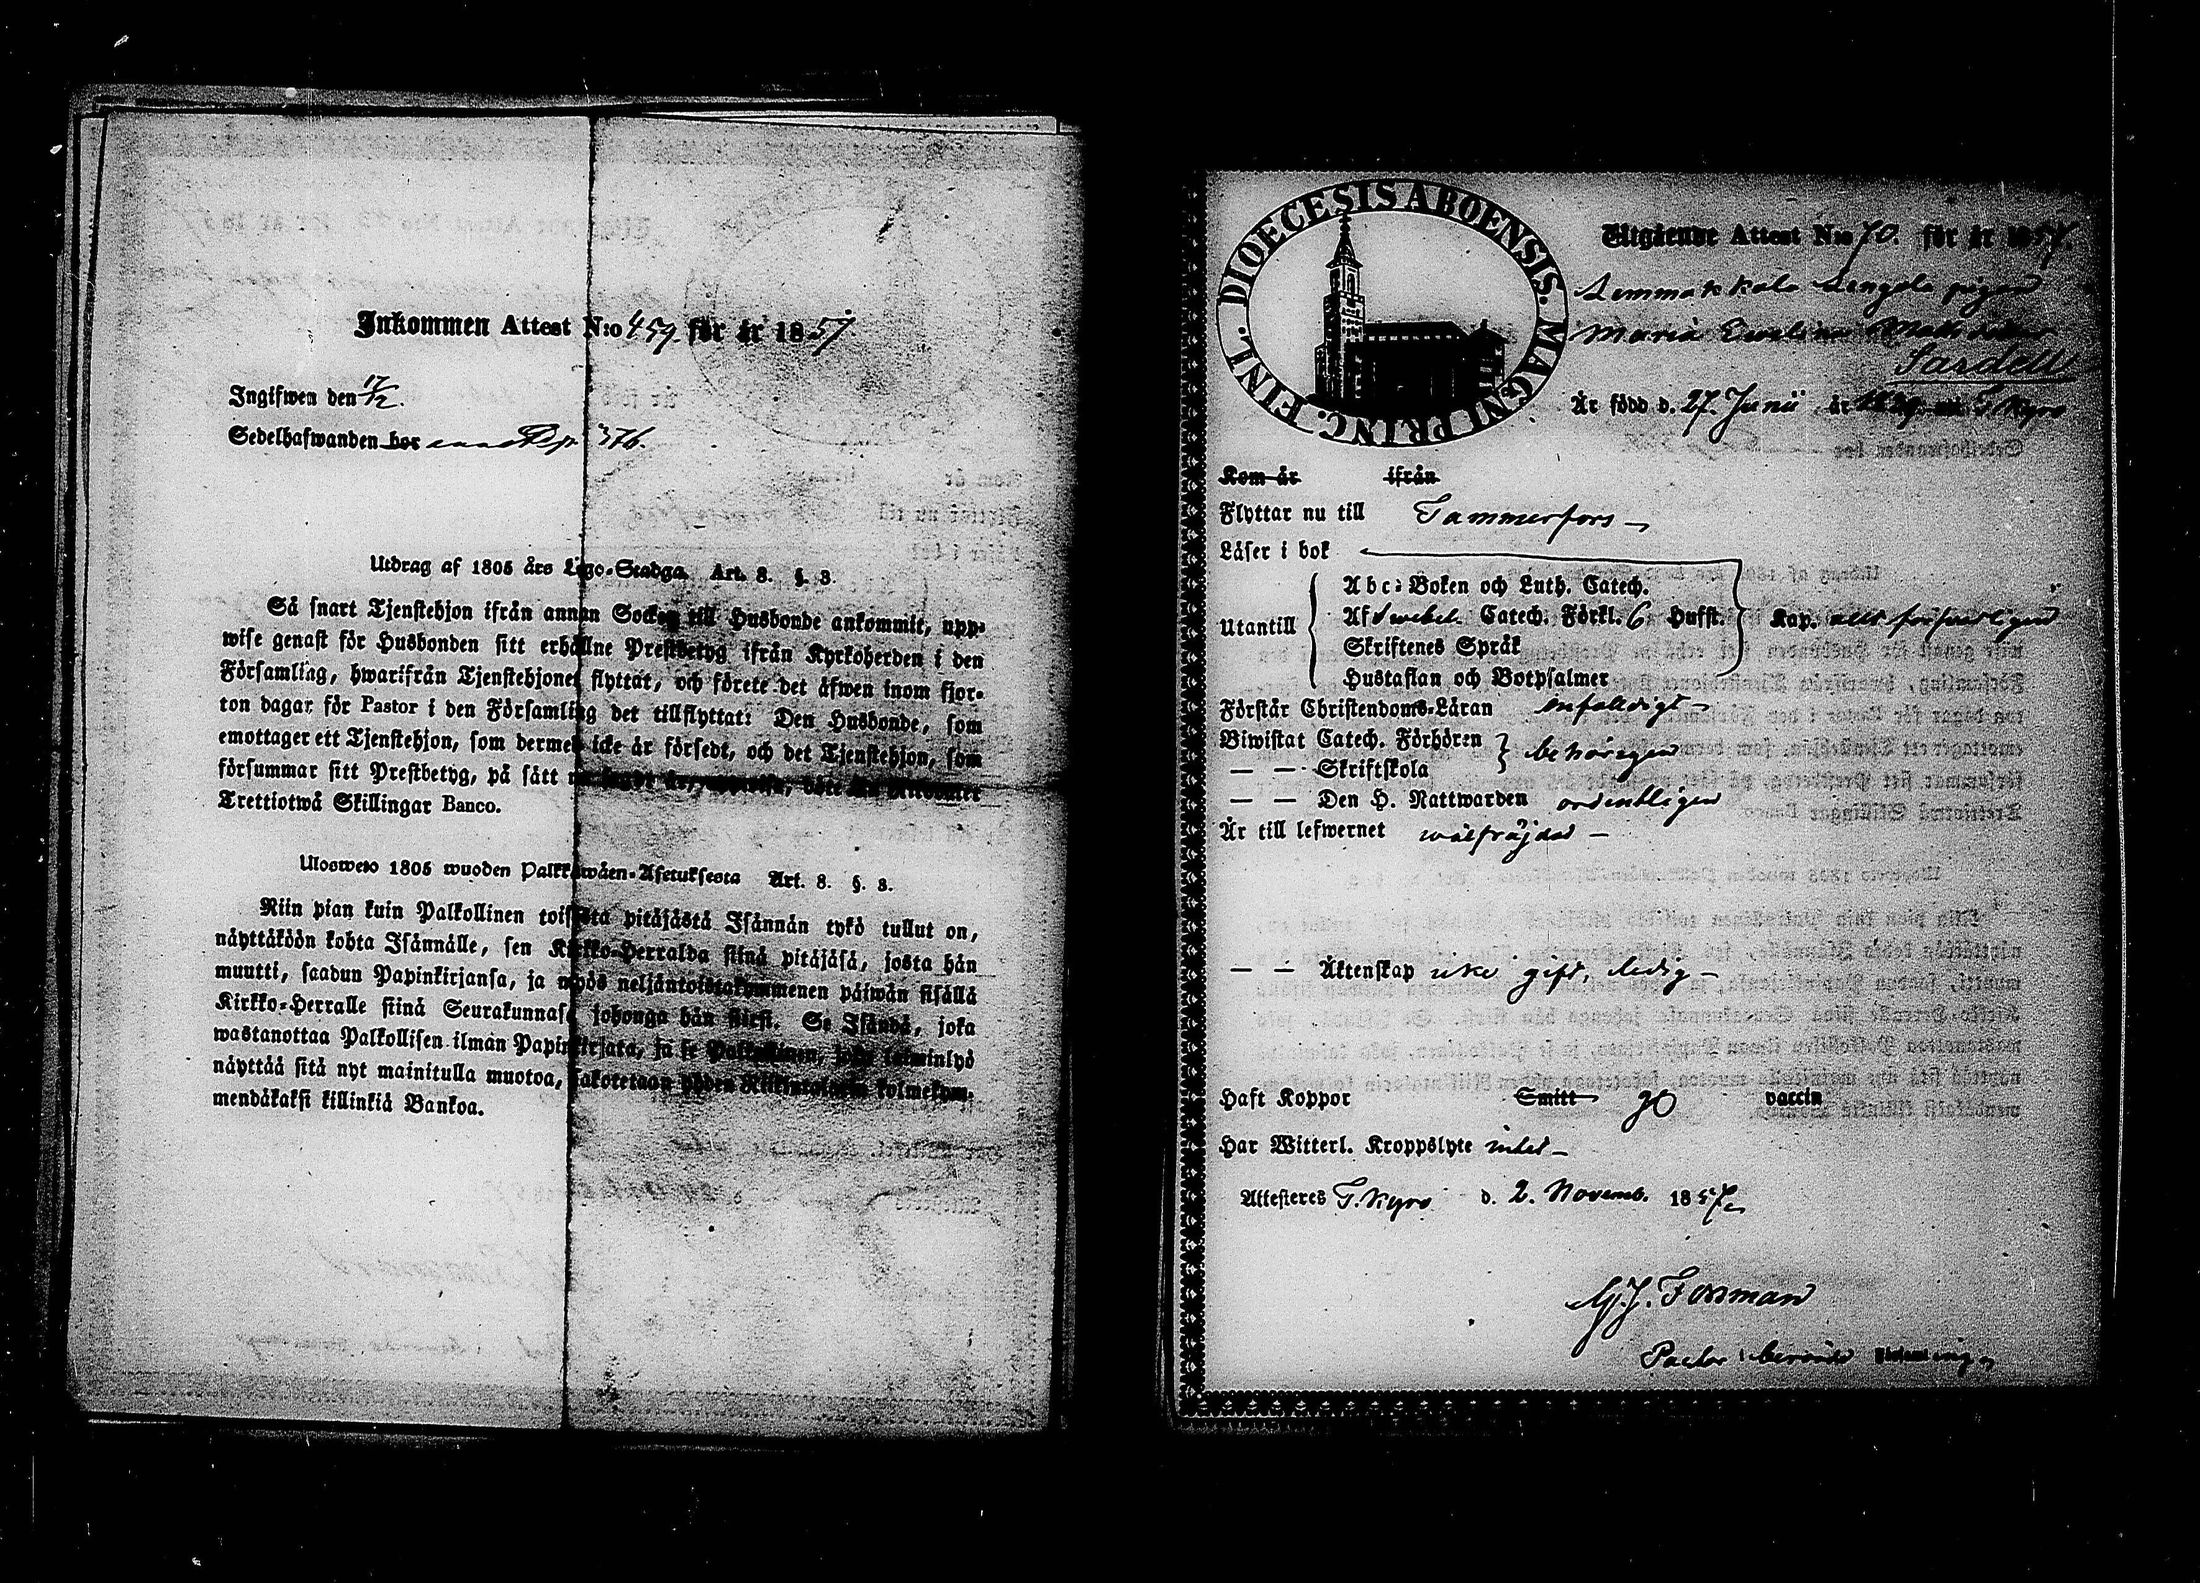 Inkommen Attest N:o 459 för år 1857
Ingifwen den 17/12.
Sedelhafwanden bor 376.
Utdrag af 1805 års Lego-Stadga Art. 8. §. 3.
Så snart Tjenstehjon ifrån annan Socken till Husbonde ankommit, upp-
wise genast för Husbonden sitt erhållne Prestbetyg ifrån Kyrkoherden i den
Församling, hwarifrån Tjenstehjonet flyttat, och förete det äfwen inom fjor-
ton dagar för Pastor i den Församling det tillflyttat: Den Husbonde, som
emottager ett Tjenstehjon, som dermed icke är försedt, och det Tjenstehjon, som
försummar sitt Prestbetyg, på sätt
Trettiotwå Skillingar Banco.
Ulosweto 1805 wuoden Palkkawäen-Asetuksesta Art. 8. §. 3.
Niin pian kuin Palkollinen toisesta pitäjästä Isännän tykö tullut on,
näyttäköön kohta Isännälle, sen Kirkko-Herralda siinä pitäjäsä, josta hän
muutti, saadun Papinkirjansa, ja myös neljäntoistakymmenen päiwän sisällä
Kirkko-Herralle siinä Seurakunnasa johonga hän siirsi. Se Isändä, joka
wastanottaa Palkollisen ilman Papinkirjata, ja se Palkollinen, joka laiminlyö
näyttää sitä nyt mainitulla muotoa, sakotetaan yhden Riikintalarin kolmekym-
mendäkaksi killinkiä Bankoa.
DIOECESIS ABOENSIS. MAGNI PRINC. FINL.
Utgående Attest N:o 70. för år 1857.
Lemmakkala Lengela pigan
Maria Ewelina
Sardell
Är född d. 27. Junii år T. Kyro
Kom år ifrån
Flyttar nu till Tammerfors
Läser i bok
Utantill
Abc-Boken och Luth. Catech.
Af Swebel. Catech. Förkl. 6 Hufst.
Skriftenes Språk
Hustaflan och Botpsalmer
Kap. allt försvarligen
Förstår Christendoms-Läran enfaldigt
Biwistat Catech. Förhören
— — Skriftskola
behörigen
— — Den H. Nattwarden ordentligen
Är till lefwernet wälfräjdad
— — Äktenskap icke gift, ledig
Haft Koppor Smitt go vaccin
Har Witterl. Kroppslyte intet
Attesteres T. Kyro d. 2. Novemb. 1857
G. J. Forsman
Pastor